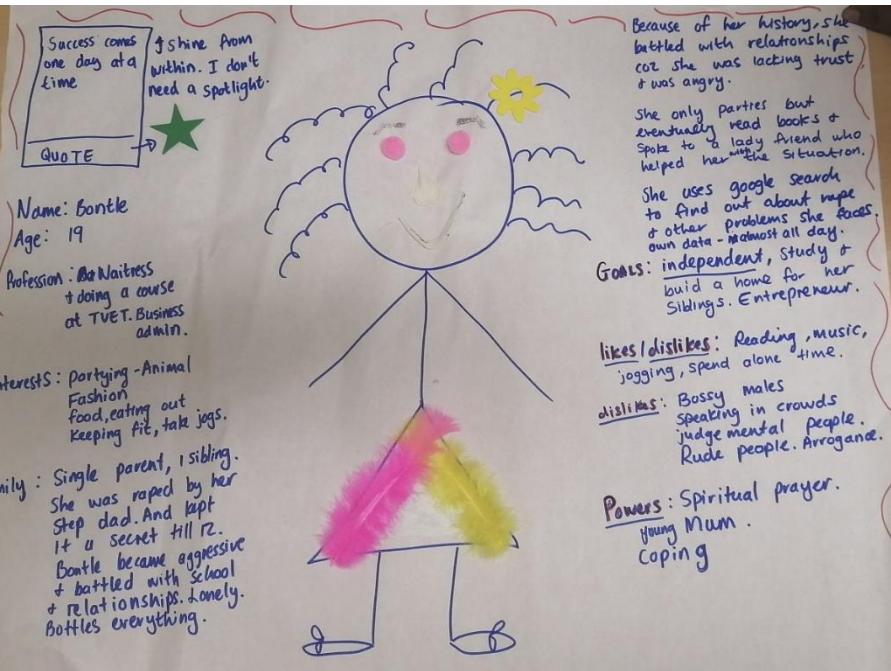 Success comes
one day at a
time
QUOTE
I shine from
within. I don't
need a spotlight.
Name: Bontle
Age: 19
Profession: Waitress
+ doing a course
at TVET. Business
admin.
nterests: partying - Animal
Fashion
food, eating out
keeping fit, take jogs.
mily: Single parent, 1 sibling.
She was raped by her
Step dad. And kept
It a secret till 12.
Bontle became aggressive
+ battled with school
+ relationships. Lonely.
Bottles everything.
Because of her history, she
battled with relationships
coz she was lacking trust
+ was angry.
She only parties but
eventually read books +
spoke to a lady friend who
helped her with the situation.
She uses google search
to find out about rape
+ other problems she faces.
own data - almost all day.
GOALS: independent, study +
buid a home for her
Siblings. Entrepreneur.
likes/dislikes: Reading, music,
jogging, spend alone time.
dislikes: Bossy males
speaking in crowds
judgemental people.
Rude people. Arrogance.
Powers: Spiritual prayer.
young Mum.
coping